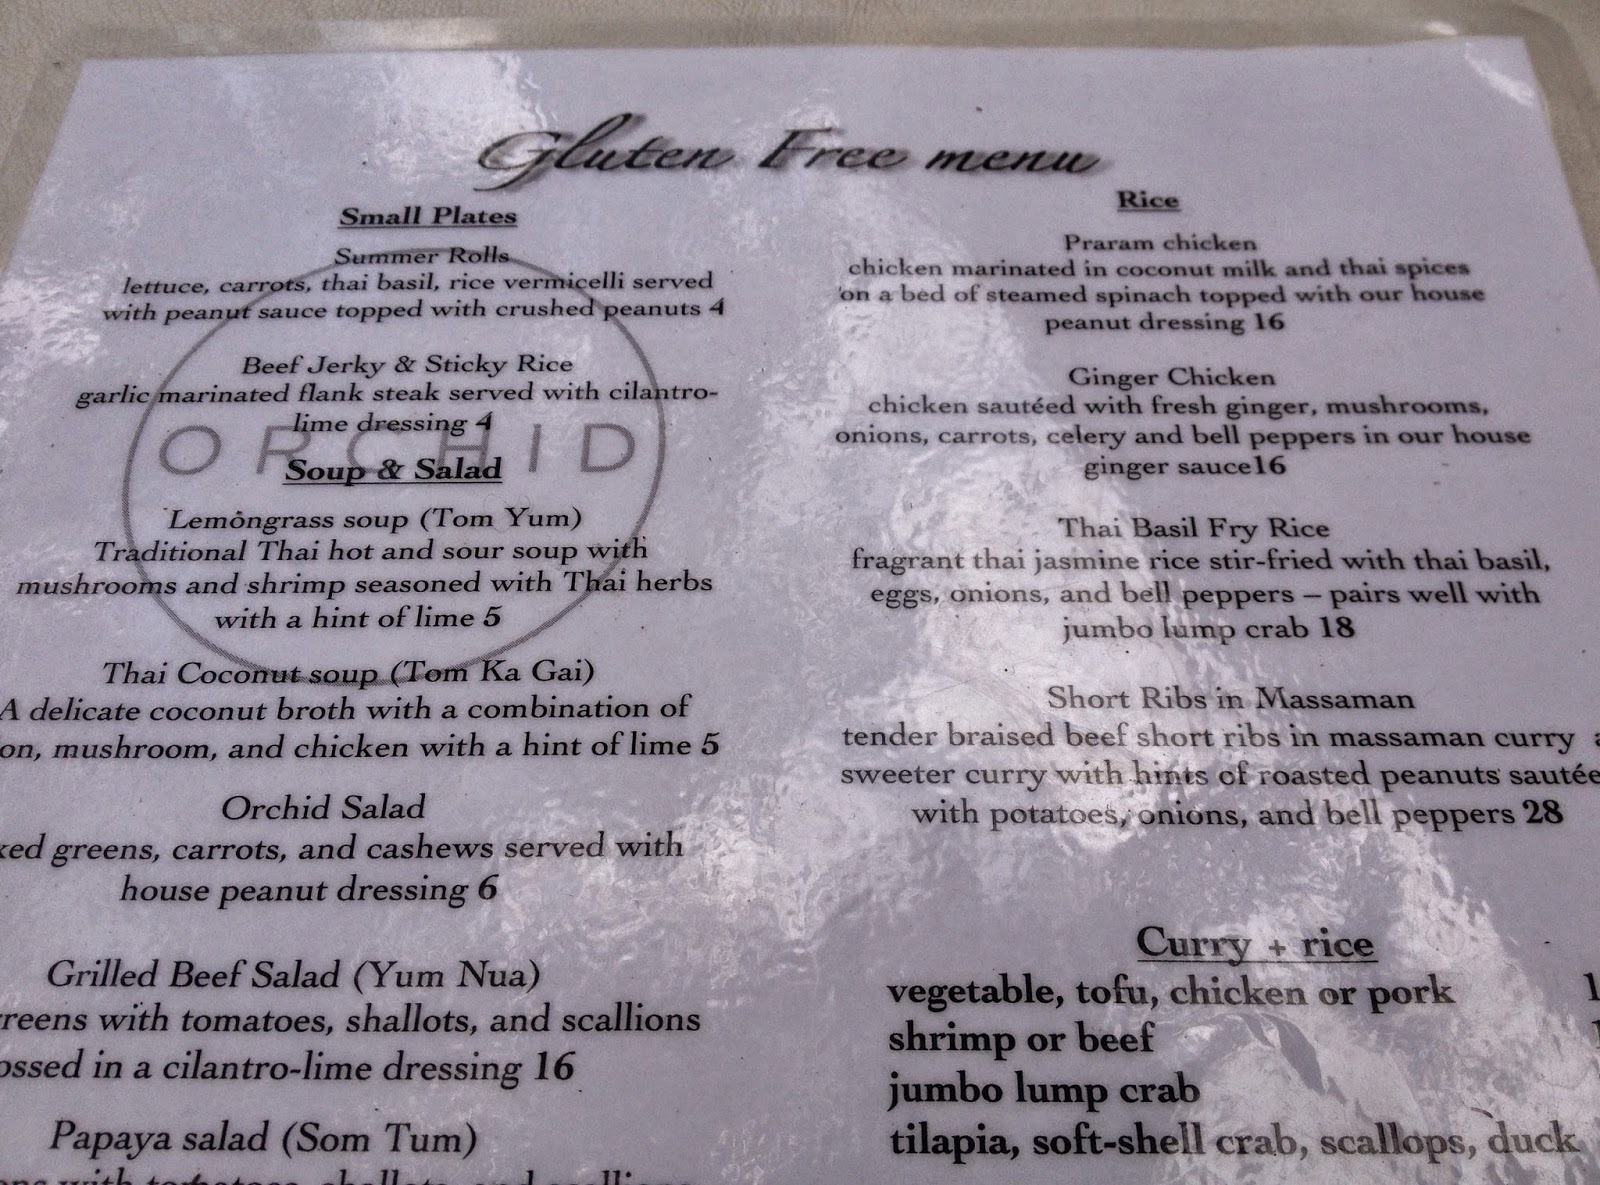 Gluten Free menu
Small Plates
Summer Rolls
lettuce, carrots, thai basil, rice vermicelli served
with peanut sauce topped with crushed peanuts 4
Beef Jerky & Sticky Rice
garlic marinated flank steak served with cilantro-
lime dressing 4
ORCHID
Soup & Salad
Lemongrass soup (Tom Yum)
Traditional Thai hot and sour soup with
mushrooms and shrimp seasoned with Thai herbs
with a hint of lime 5
Thai Coconut soup (Tom Ka Gai)
A delicate coconut broth with a combination of
on, mushroom, and chicken with a hint of lime 5
Orchid Salad
greens, carrots, and cashews served with
house peanut dressing 6
Grilled Beef Salad (Yum Nua)
reens with tomatoes, shallots, and scallions
ossed in a cilantro-lime dressing 16
Papaya salad (Som Tum)
Rice
Praram chicken
chicken marinated in coconut milk and thai spices
on a bed of steamed spinach topped with our house
peanut dressing 16
Ginger Chicken
chicken sautéed with fresh ginger, mushrooms,
onions, carrots, celery and bell peppers in our house
ginger sauce16
Thai Basil Fry Rice
fragrant thai jasmine rice stir-fried with thai basil,
eggs, onions, and bell peppers – pairs well with
jumbo lump crab 18
Short Ribs in Massaman
tender braised beef short ribs in massaman curry a
sweeter curry with hints of roasted peanuts sautée
with potatoes, onions, and bell peppers 28
Curry + rice
vegetable, tofu, chicken or pork
shrimp or beef
jumbo lump crab
tilapia, soft-shell crab, scallops, duck